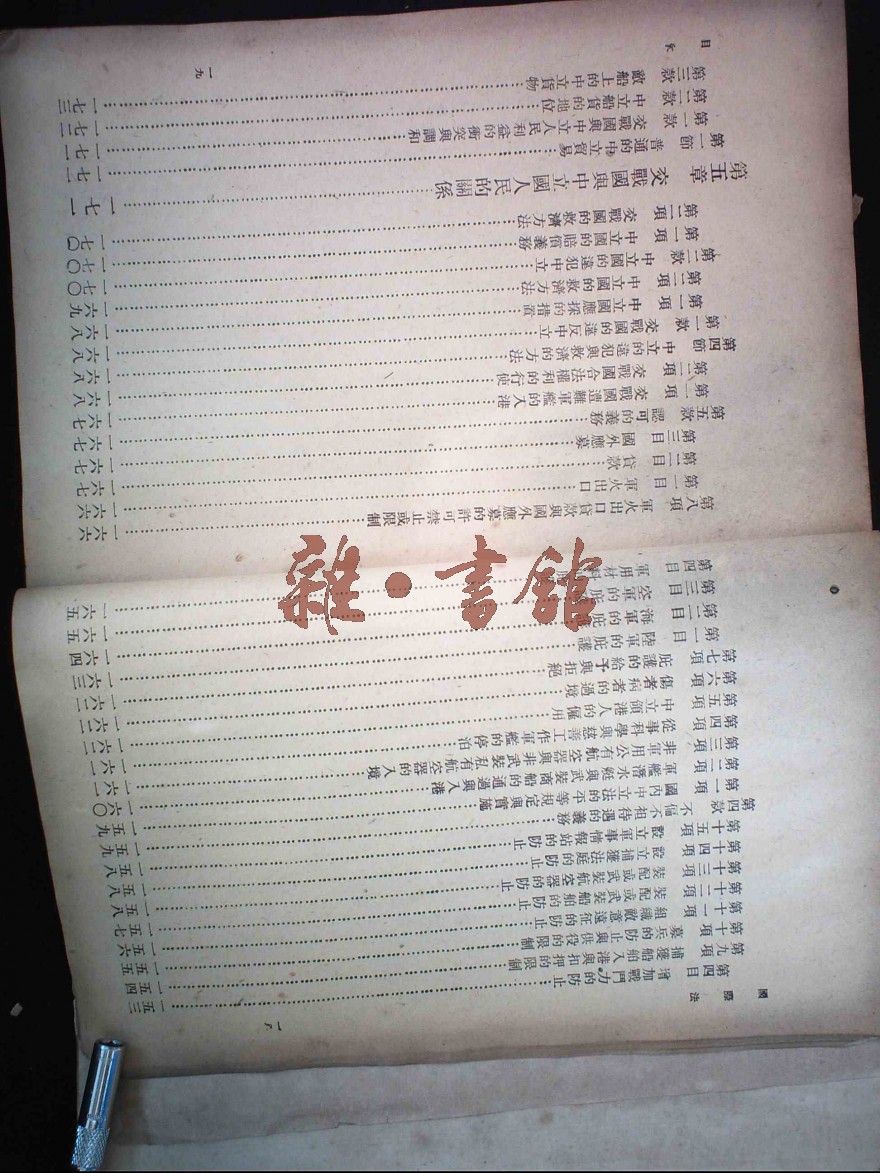 國際法
一八
第四目 增加戰鬥力的防止 一五三
第九項 捕獲船舶入港與扣押的限制 一五四
第十項 募兵的防止與供役的限制 一五五
第十一項 組織敵意遠征的防止 一五六
第十二項 裝配或武裝船舶的防止 一五七
第十三項 裝配或武裝航空器的防止 一五八
第十四項 設立捕獲法庭的防止 一五八
第十五項 設立軍事情報站的防止 一五八
第四款 不偏不袒待遇的義務 一五九
第一項 國內中立法的平等規定與實施 一五九
第二項 軍艦潛水艇與武裝商船的通過與入港 一六〇
第三項 非軍用公有航空器與非武裝私有航空器的入境 一六一
第四項 從事科學與慈善工作軍艦的停泊 一六一
第五項 中立領港人的僱用 一六二
第六項 傷者病者的過境 一六二
第七項 庇護的給予與拒絕 一六二
第一目 陸軍的庇護 一六三
第二目 海軍的庇護 一六四
第三目 空軍的庇護 一六五
第四目 軍用材料 一六五
目次
一九
第八項 軍火出口貸款與國外應募的許可禁止或限制 一六六
第一目 軍火出口 一六六
第二目 貸款 一六七
第三目 國外應募 一六七
第五款 認可的義務 一六七
第一項 交戰國遭難軍艦的入港 一六八
第二項 交戰國合法權利的行使 一六八
第四節 中立的違犯與救濟的方法 一六八
第一款 交戰國的違反中立 一六八
第一項 中立國應採的措置 一六九
第二項 中立國的救濟方法 一七〇
第二款 中立國的違犯中立 一七〇
第一項 中立國的賠償義務 一七〇
第二項 交戰國的救濟方法
第五章 交戰國與中立國人民的關係 一七一
第一節 普通的中立貿易 一七一
第一款 交戰國與中立人民利益的衝突與調和 一七一
第二款 中立船貨的地位 一七二
第三款 敵船上的中立貨物 一七三
雜·書館